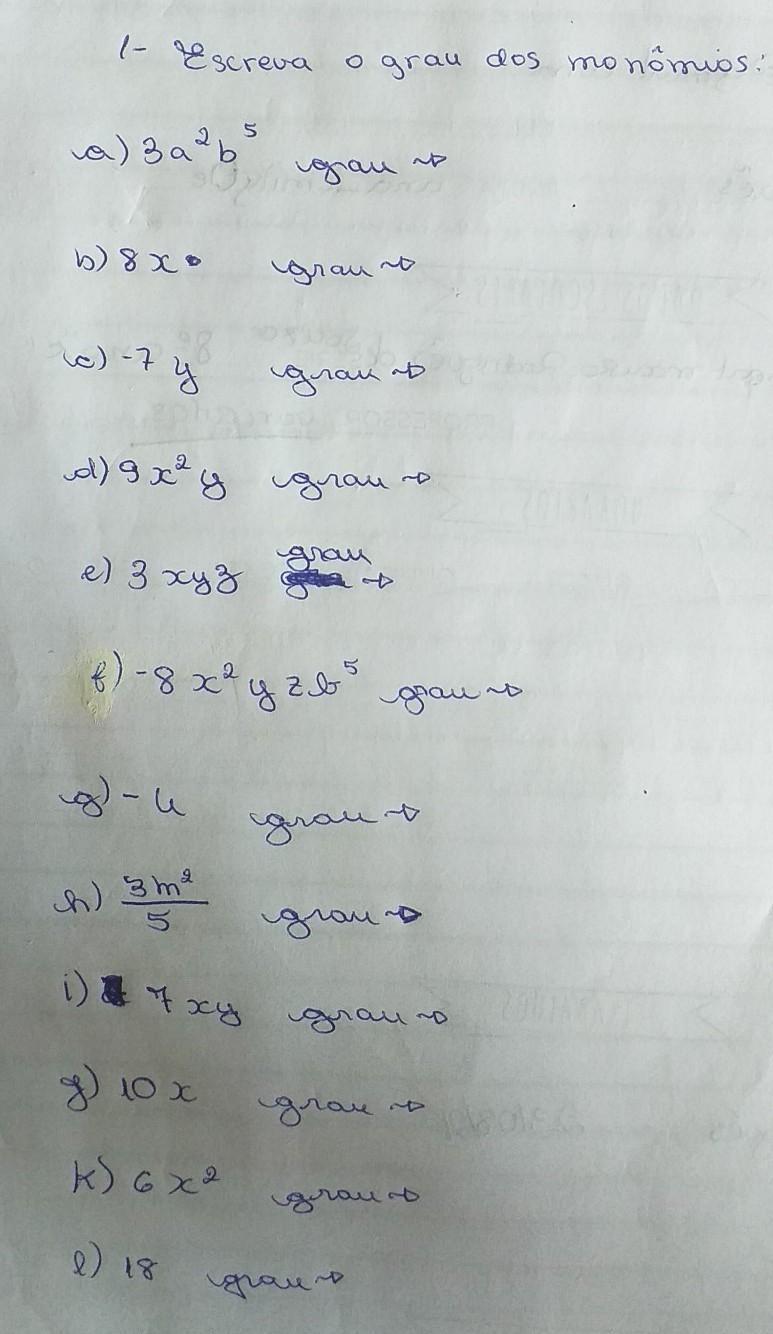 1- Escreva o grau dos monômios:
a) 3a²b⁵ grau →
b) 8x grau →
c) -7y grau →
d) 9x²y grau →
e) 3xyz grau →
f) -8x²yzb⁵ grau →
g) -4 grau →
h) 3m²/5 grau →
i) 7xy grau →
j) 10x grau →
k) 6x² grau →
l) 18 grau →